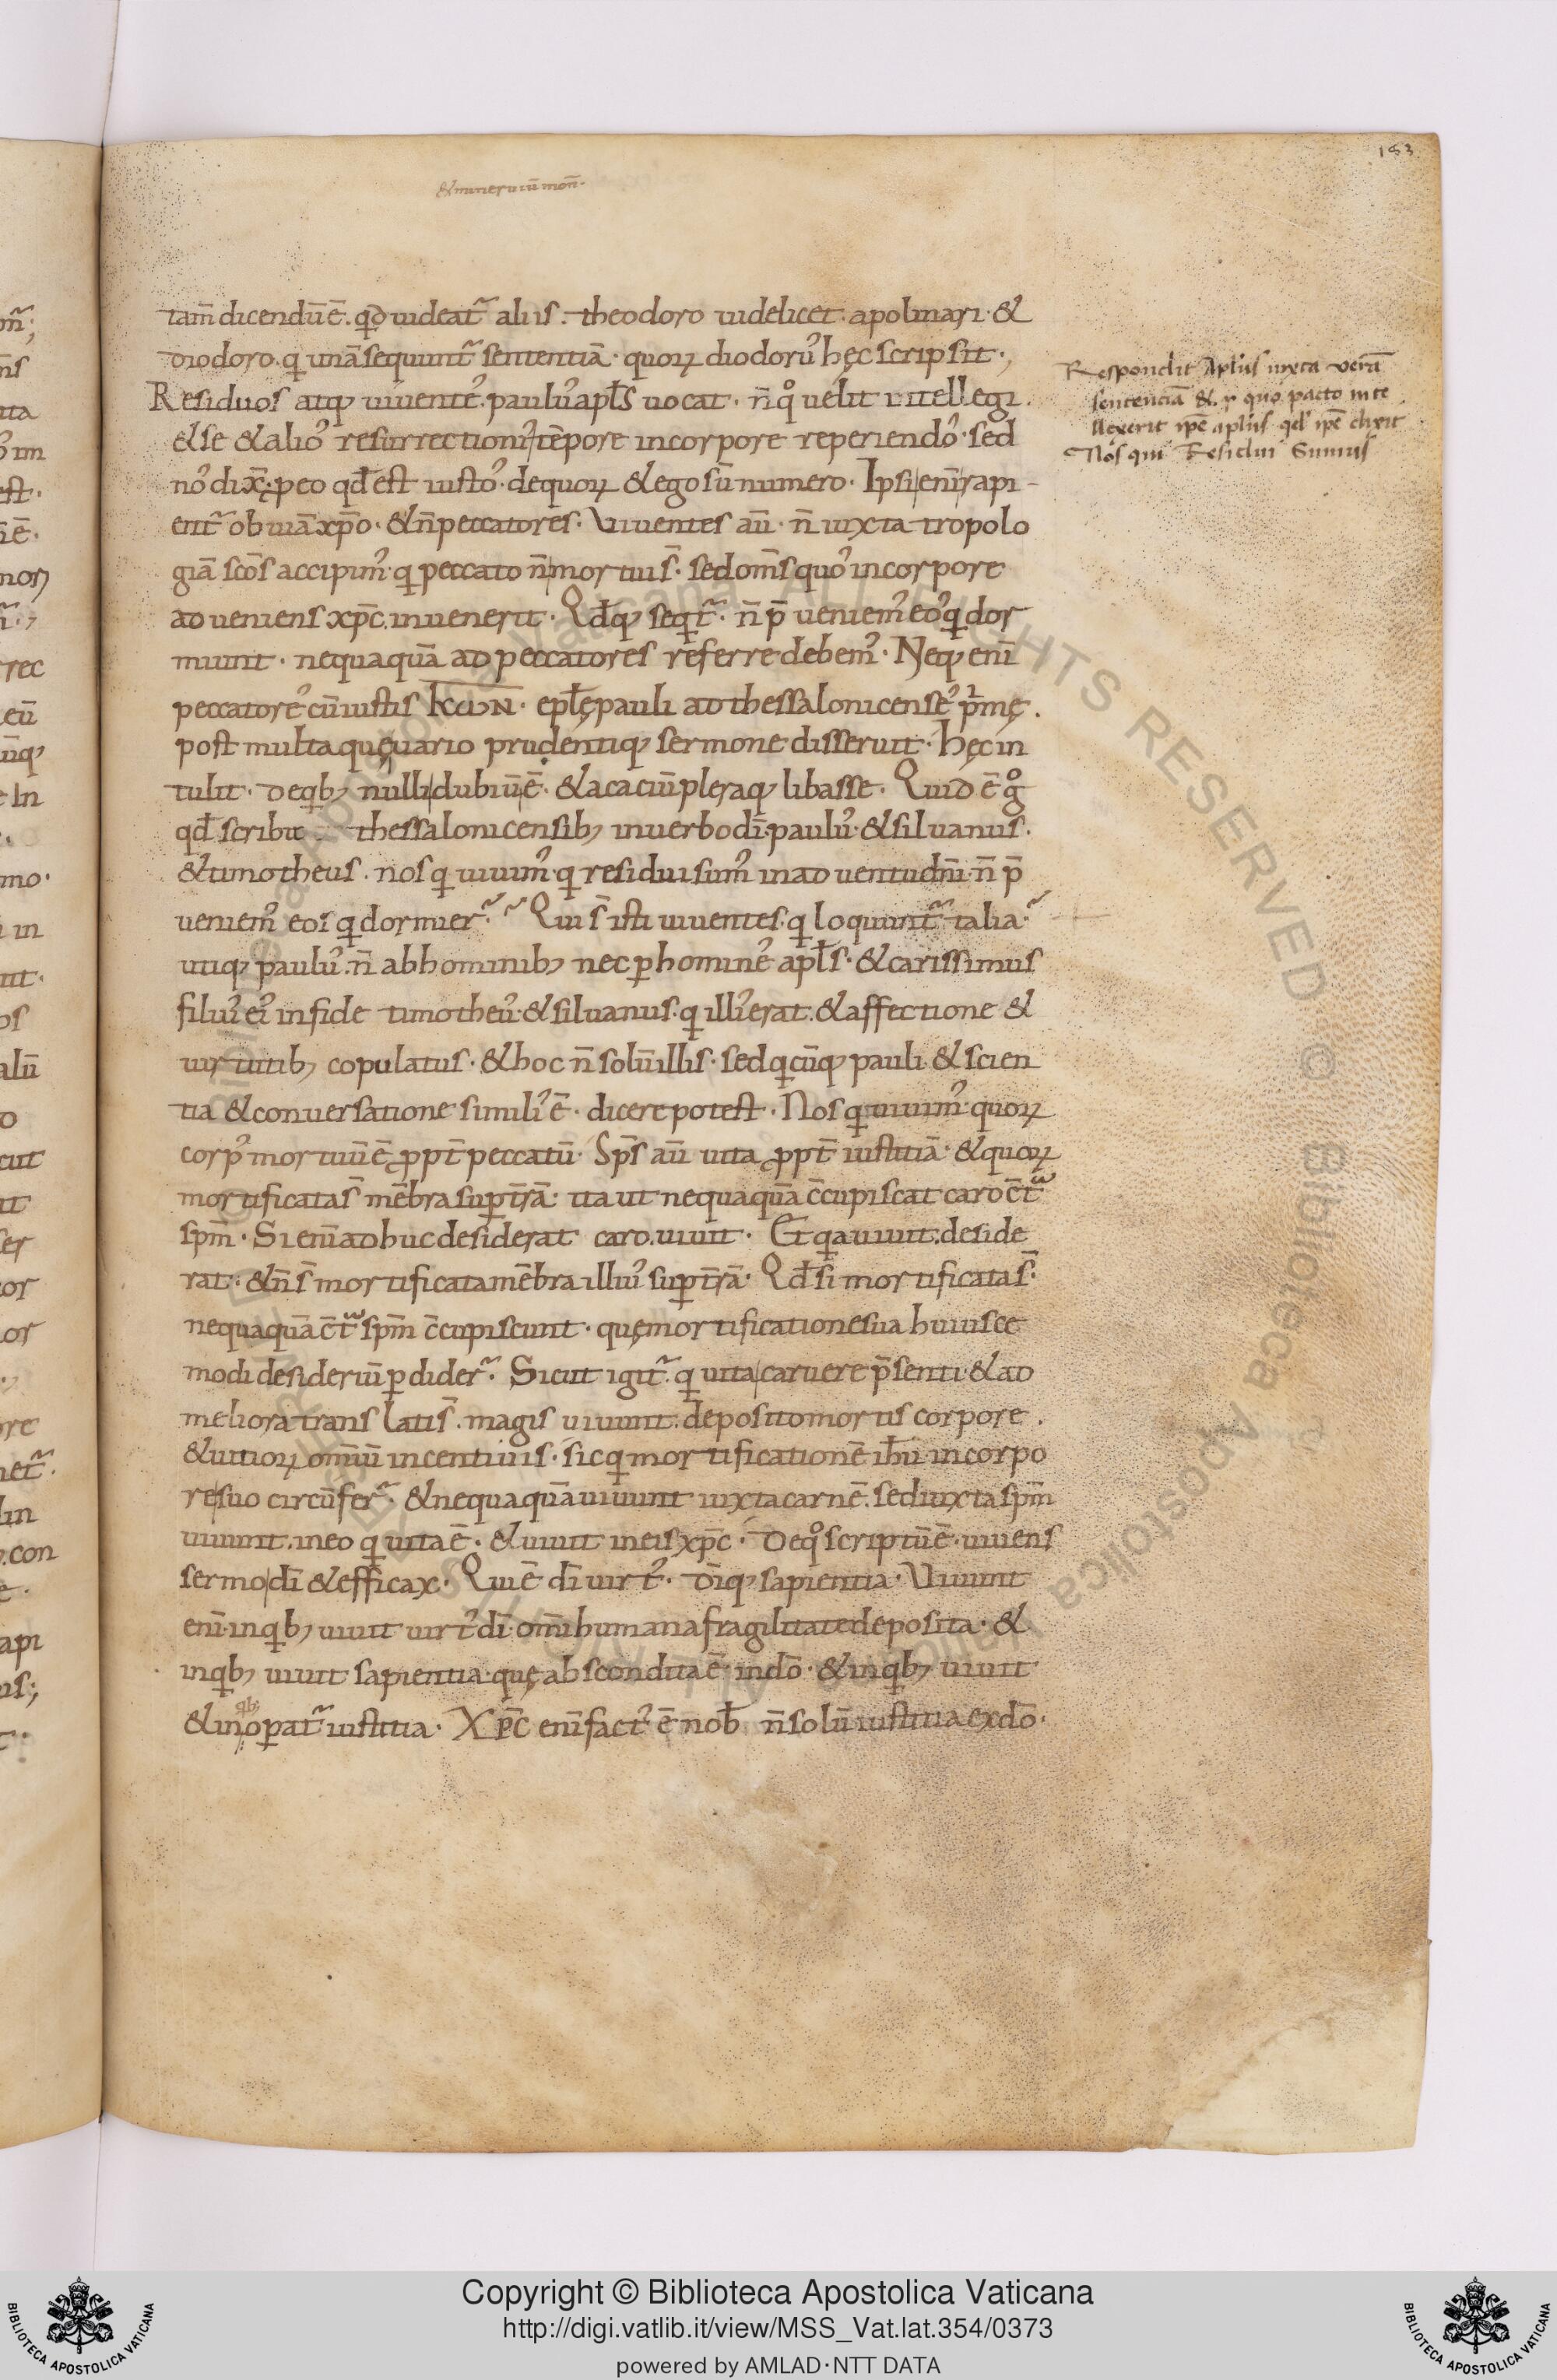 183
&mineruiū mon̄.
tam̄ dicendūē. qđ uideat᷑ aliis. theodoro uidelicet. apolinari. &
diodoro. q unā sequunt᷑ sententiā. quoꝝ diodorꝰ hęc scripsit.,
Residuos atq; uiuentēꝰ. paulꝰ apłs uocat. n̄ qͦ uelit intellegi.
& se & aliꝰ resurrectionꝰ tēpore incorpore reperiendoꝰ. sed
noꝰ dix̄. ꝓ eo qđ est iustoꝰ. dequoꝝ & ego sū numero. Ipsi enī rapi-
ent᷑ obuiā xp̄o. & n̄ peccatores. Uiuentes aū. n̄ iuxta tropolo
giā scōs accipimꝰ. q peccato n̄ mortui s̄. sed om̄s quoꝰ incorpore
adueniens xp̄c. inuenerit. Qđq; seqt᷑. n̄ p̄ueniemꝰ eoꝰ q dor
miunt. nequaquā ad peccatores referre debemꝰ. Neq; enī
peccatoreꝰ cū iustis κ̅ω̅ν̅. epłę pauli ad thessalonicenseꝰ p̄mę.
post multa quę uario prudentiq; sermone disseruit. hęc in
tulit. deqb; nulli dubiū ē. & acaciū pleraq; libasse. Quid ē gͦ
qđ scribit thessalonicensib; in uerbo dī. paulꝰ. & siluanus.
& timotheus. nos q uiuimꝰ. q residui sumꝰ in aduentu dn̄i. n̄ p̄
ueniemꝰ eos q dormier᷑. Qui s̄ isti uiuentes. q loquunt᷑ talia.
utiq; paulꝰ. n̄ ab hominib; nec ꝑ hominē apłs. & carissimus
filiꝰ eiꝰ in fide timotheꝰ. & siluanus. q illiꝰ erat. & affectione &
uirtutib; copulatus. & hoc n̄ solū illis. sed qcūq; pauli & scien
tia & conuersatione similiꝰ ē. dicere potest. Nos q uiuimꝰ. quoꝝ
corpꝰ mortuū ē ꝓpt̄ peccatū. Sp̄s aū uita ꝓpt̄ iustitiā. & quoꝝ
mortificata s̄ mēbra sup t̄rā. ita ut nequaquā c̄cupiscat caro c̄tᷓ
sp̄m. Si enī adhuc desiderat caro. uiuit. Et qa uiuit. deside
rat. & n̄ s̄ mortificata mēbra illiꝰ sup t̄rā. Qđ si mortificata s̄.
nequaquā c̄tᷓ sp̄m c̄cupiscunt. quę mortificatione sua huiusce
modi desideriū ꝑdider᷑. Sicut igit᷑ q uita caruere p̄senti. & ad
meliora translati s̄. magis uiuunt. deposito mortis corpore.
& uitioꝝ omniū incentiuis. sic q mortificationē ihū in corpo
re suo circūfer᷑. & nequaquā uiuunt iuxta carnē. sed iuxta sp̄m
uiuunt. in eo q uita ē. & uiuit in eis xp̄c. De qͦ scriptū ē. uiuens
sermo dī & efficax. Qui ē dī uirtꝰ. dīq; sapientia. Uiuunt
enī in qb; uiuit uirtꝰ dī. omī humana fragilitate deposita. &
in qb; uiuit sapientia. quę abscondita ē. in dō. & in qb; uiuit
& in qb; oꝑat᷑ iustitia. Xp̄c enī factꝰ ē nob̄ n̄ solū iustitia ex dō.
Respondit Aplūs iuxta verā
sentenciā &. p quo pacto inte
llexerit ip̄e aplūs qđ ip̄e dixit
Nos qui Residui Sumus
Copyright © Biblioteca Apostolica Vaticana
http://digi.vatlib.it/view/MSS_Vat.lat.354/0373
powered by AMLAD·NTT DATA
BIBLIOTECA APOSTOLICA VATICANA
BIBLIOTECA APOSTOLICA VATICANA